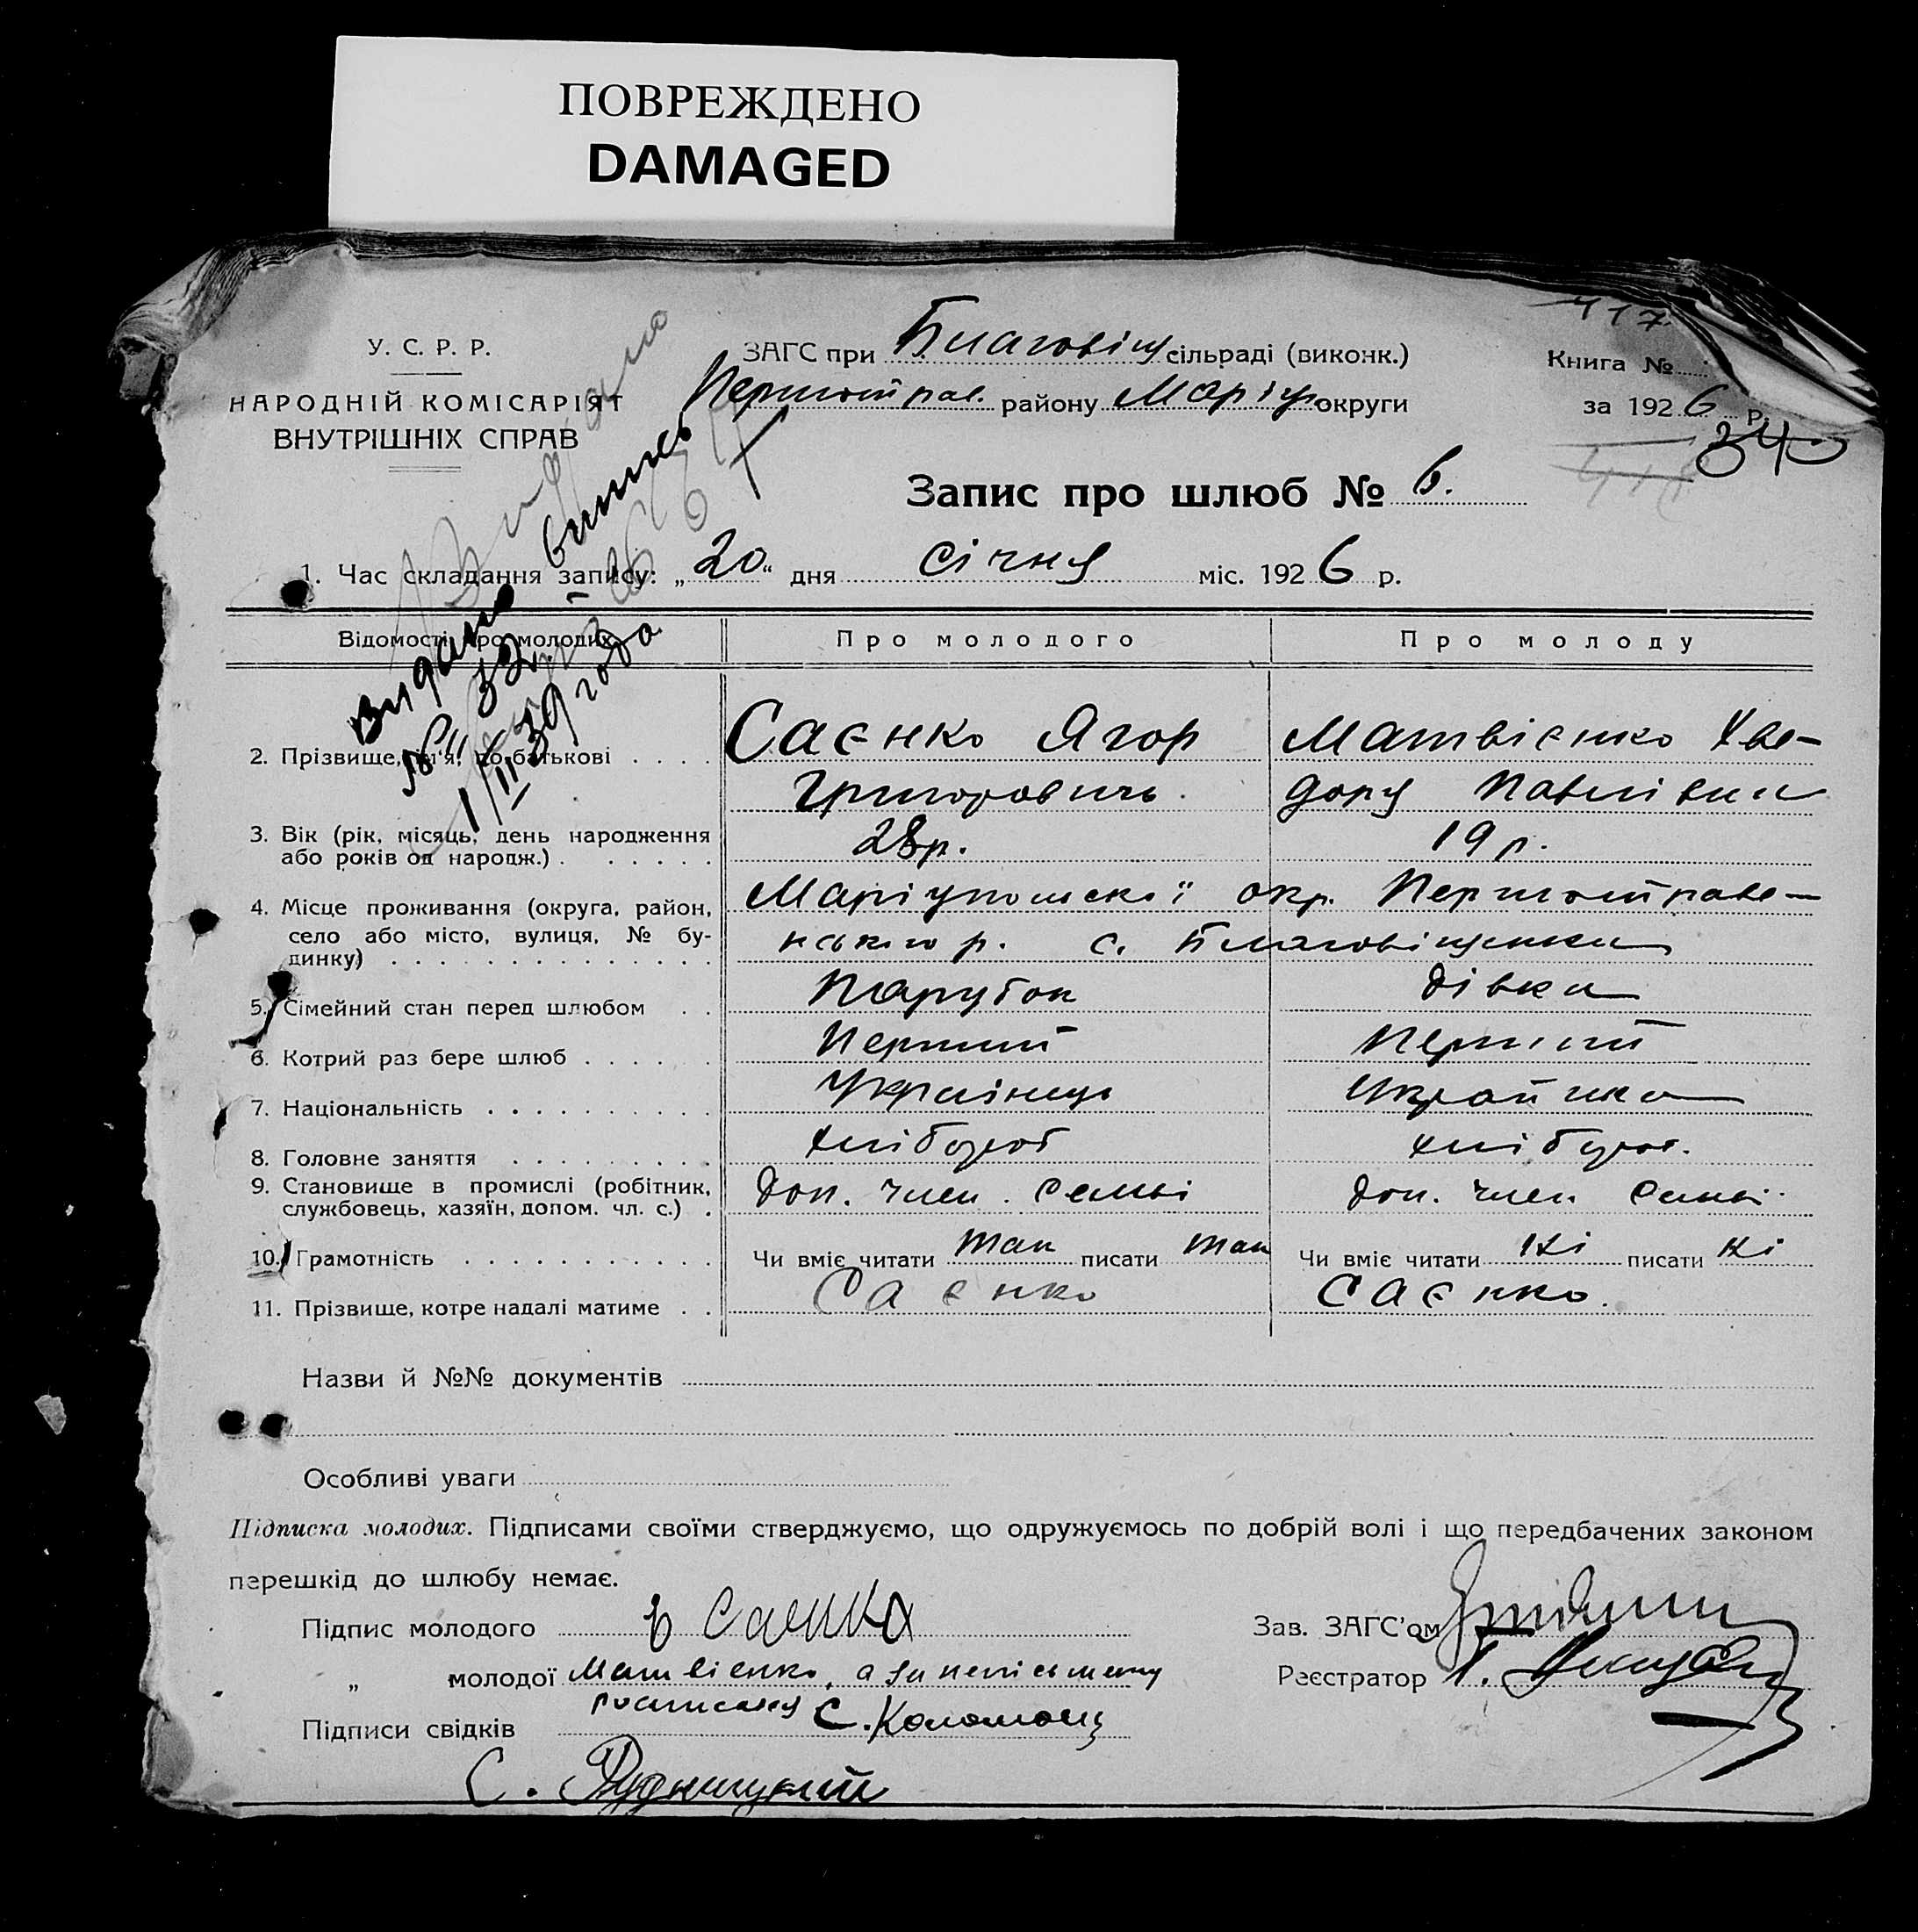 ПОВРЕЖДЕНО
DAMAGED
У. С. Р. Р.
НАРОДНІЙ КОМІСАРІЯТ
ВНУТРІШНІХ СПРАВ
ЗАГС при Благовіщ сільраді (виконк.)
Першотрав. району Маріуп округи
117
Книга №
за 1926 р.
340
Запис про шлюб № 6.
1. Час складання запису: „20“ дня січня міс. 1926 р.
Видано
№ 32
1/II 39 года
Відомості про молодих
Про молодого
Про молоду
2. Прізвище, ім'я, по батькові
Саєнко Ягор
Григоровичь.
Матвієнко Хве-
дора Павлівна
3. Вік (рік, місяць, день народження
або років од народж.)
28р.
19 р.
4. Місце проживання (округа, район,
село або місто, вулиця, № бу-
динку)
Маріупольскої окр. Першотраве-
нського р. с. Благовіщенка
5. Сімейний стан перед шлюбом
Парубок
Дівка
6. Котрий раз бере шлюб
Перший
Перший
7. Національність
Українець
Украйнка
8. Головне заняття
хлібороб
хлібороб.
9. Становище в промислі (робітник,
службовець, хазяїн, допом. чл. с.)
Доп. член. семьі
Доп. член семьі
10. Грамотність
Чи вміє читати так писати так
Чи вміє читати ні писати ні
11. Прізвище, котре надалі матиме
Саєнко
Саєнко.
Назви й №№ документів
Особливі уваги
Підписка молодих. Підписами своїми стверджуємо, що одружуємось по добрій волі і що передбачених законом
перешкід до шлюбу немає.
Підпис молодого
Зав. ЗАГС'ом
„ молодої Матвієнко, а за непісьмену
Реєстратор
росписався С. Коломоец
Підписи свідків
С. Рудницкий